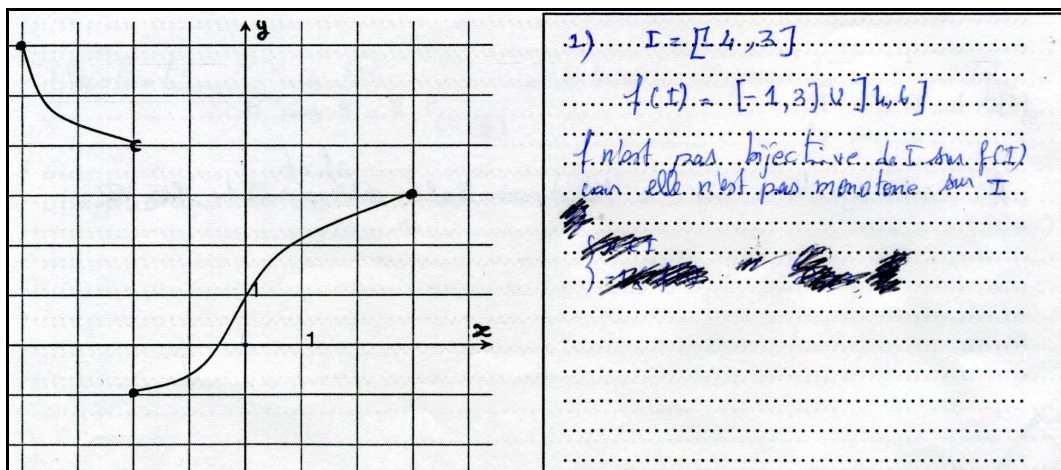 y
1
x
1
1) I = [-4, 3]
f(I) = [-1, 3] ∪ ]4, 6]
f n'est pas bijective de I sur f(I)
car elle n'est pas monotone sur I